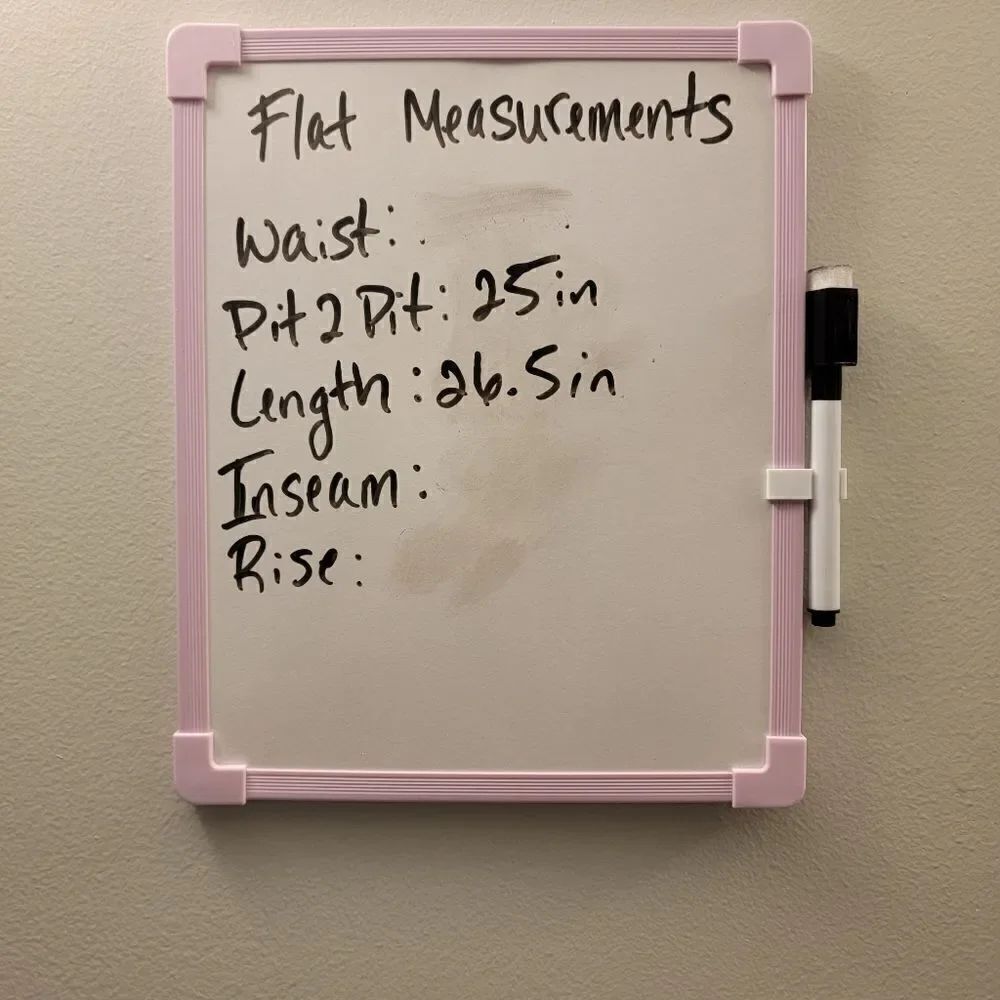 Flat Measurements
Waist:
Pit 2 Pit: 25in
Length: 26.5in
Inseam:
Rise: